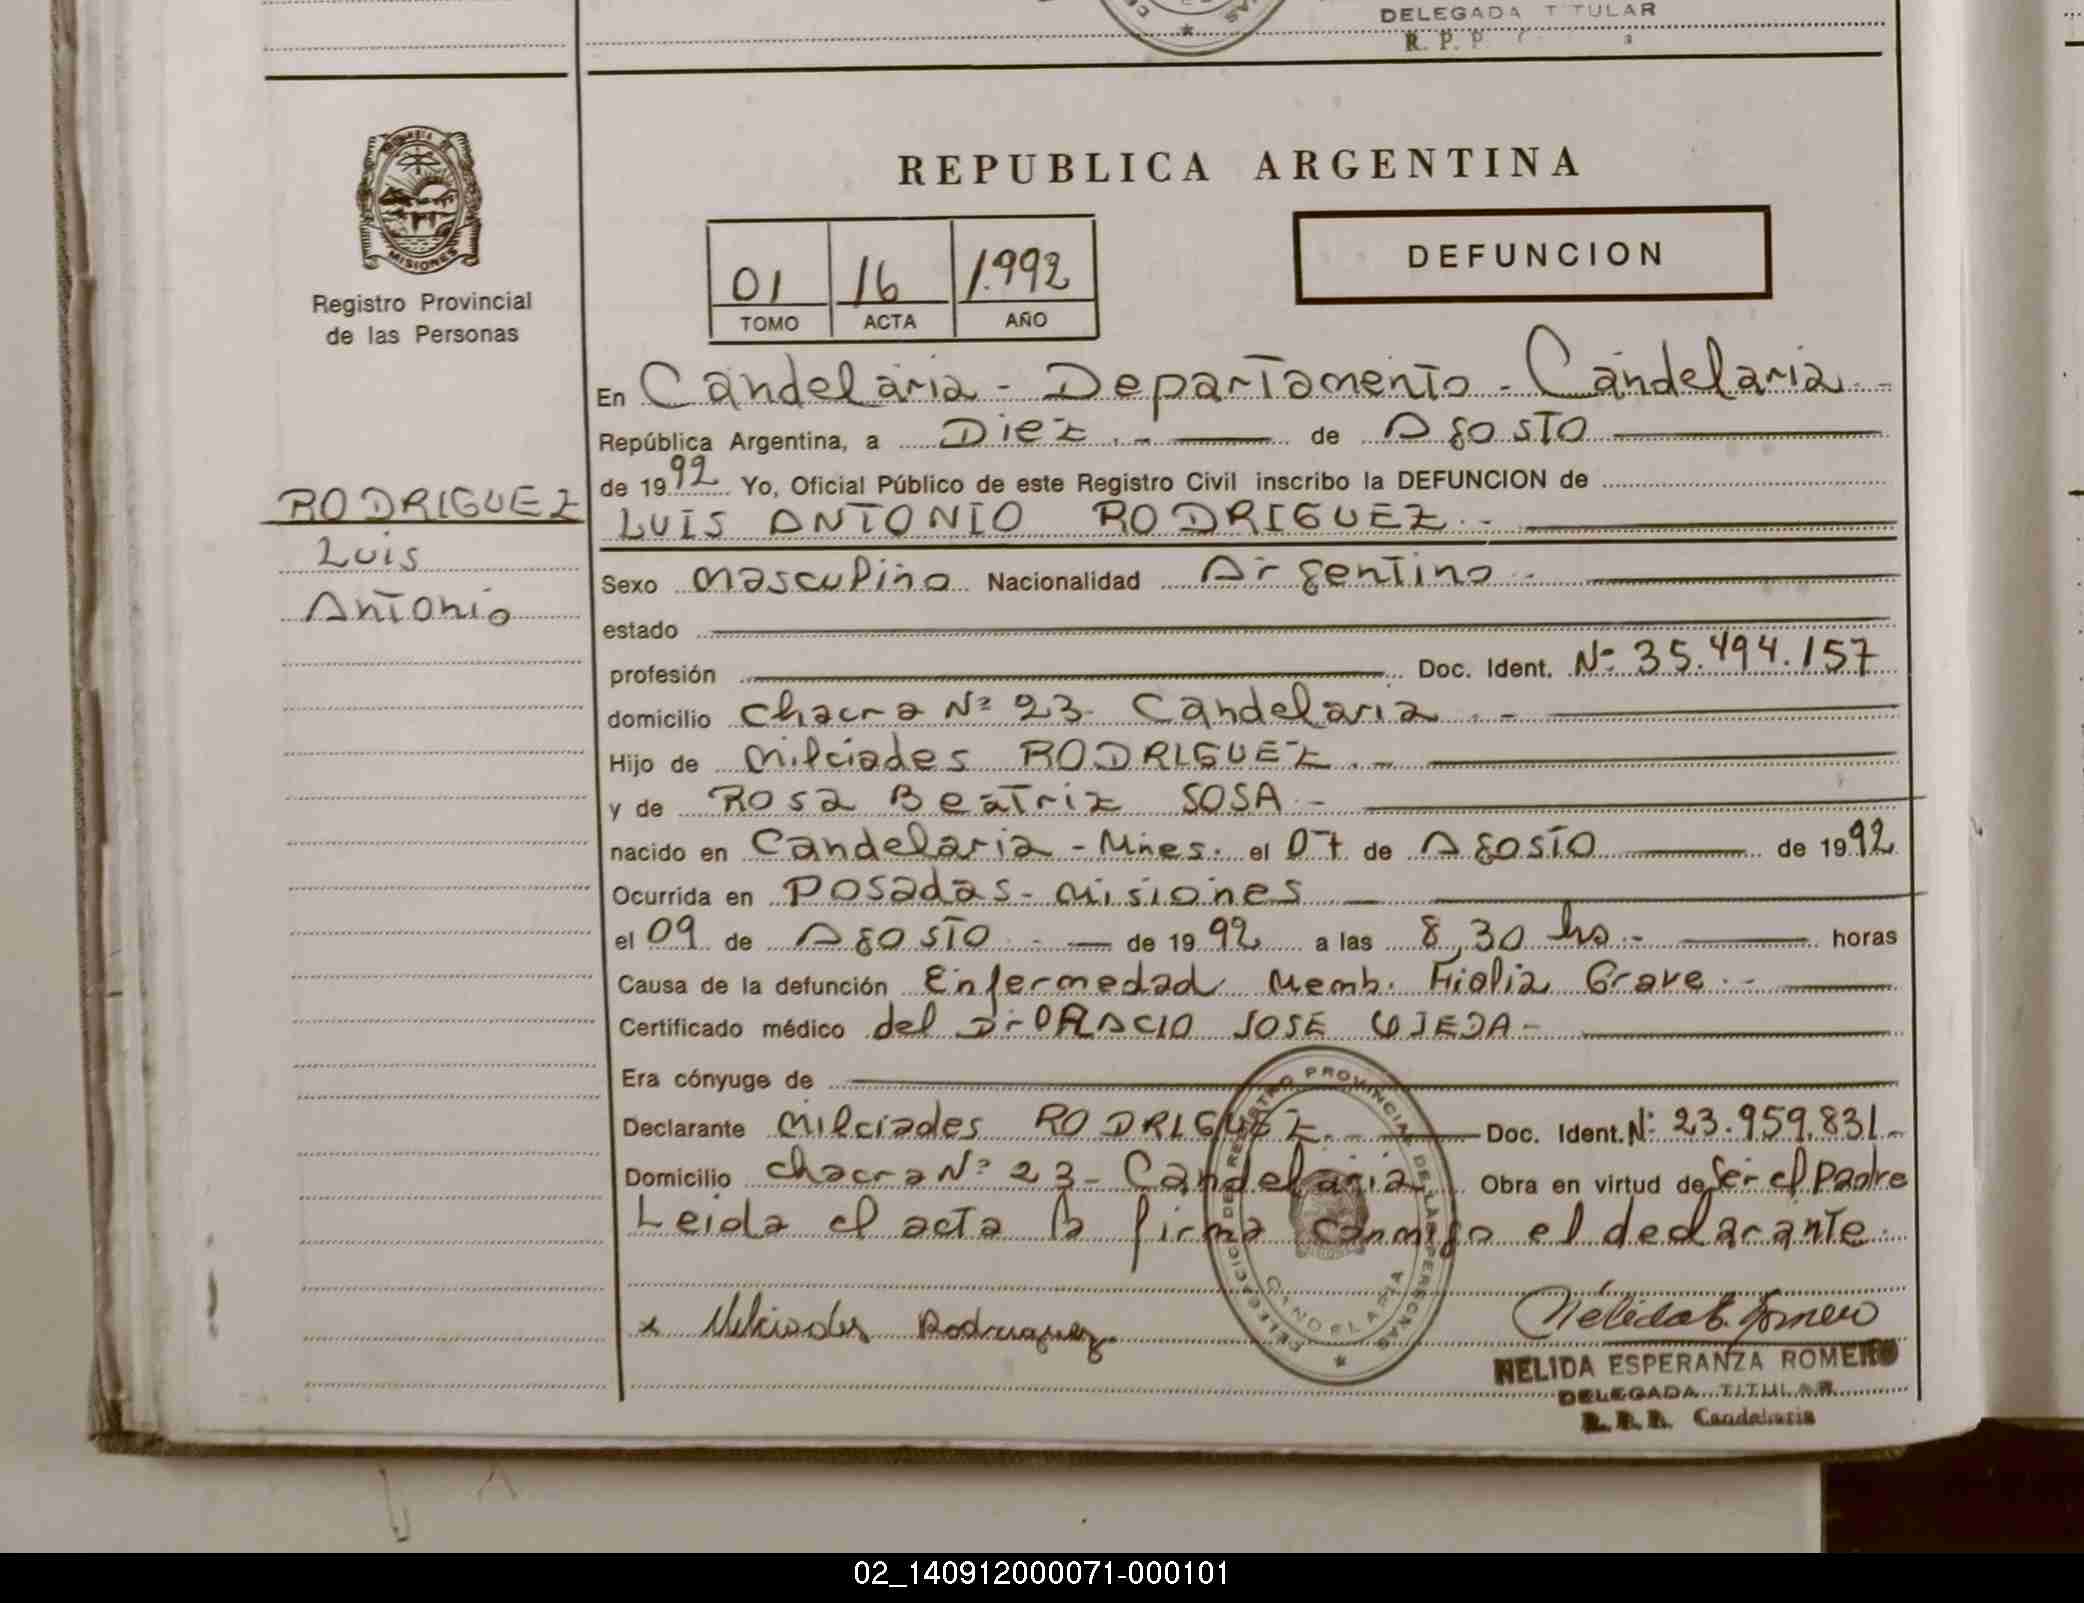 DELEGADA TITULAR
R. P. P.
MISIONES
Registro Provincial
de las Personas
REPUBLICA ARGENTINA
01 16 1.992
TOMO ACTA AÑO
DEFUNCION
En Candelaria - Departamento - Candelaria -
República Argentina, a Diez . - de Agosto
de 1992 Yo, Oficial Público de este Registro Civil inscribo la DEFUNCION de
RODRIGUEZ
LUIS ANTONIO RODRIGUEZ . -
Luis
Antonio
Sexo masculino Nacionalidad Argentino -
estado
profesión Doc. Ident. Nº 35.494.157
domicilio chacra Nº 23 - Candelaria . -
Hijo de Milciades RODRIGUEZ . -
y de Rosa Beatriz SOSA -
nacido en Candelaria - Mnes. el 07 de Agosto de 1992
Ocurrida en Posadas - Misiones
el 09 de Agosto - de 1992 a las 8,30 hs - horas
Causa de la defunción Enfermedad Memb. Hialia Grave . -
Certificado médico del Dr ORACIO JOSE OJEDA -
Era cónyuge de
Declarante Milciades RODRIGUEZ . - Doc. Ident. Nº 23.959.831 -
Domicilio chacra Nº 23 - Candelaria Obra en virtud de Ser el Padre
Leida el acta la firma conmigo el declarante .
x Milciades Rodriguez
Nélida E. Romero
REGISTRO PROVINCIAL DE LAS PERSONAS
CANDELARIA
NELIDA ESPERANZA ROMERO
DELEGADA TITULAR
R. P. P. Candelaria
02_140912000071-000101